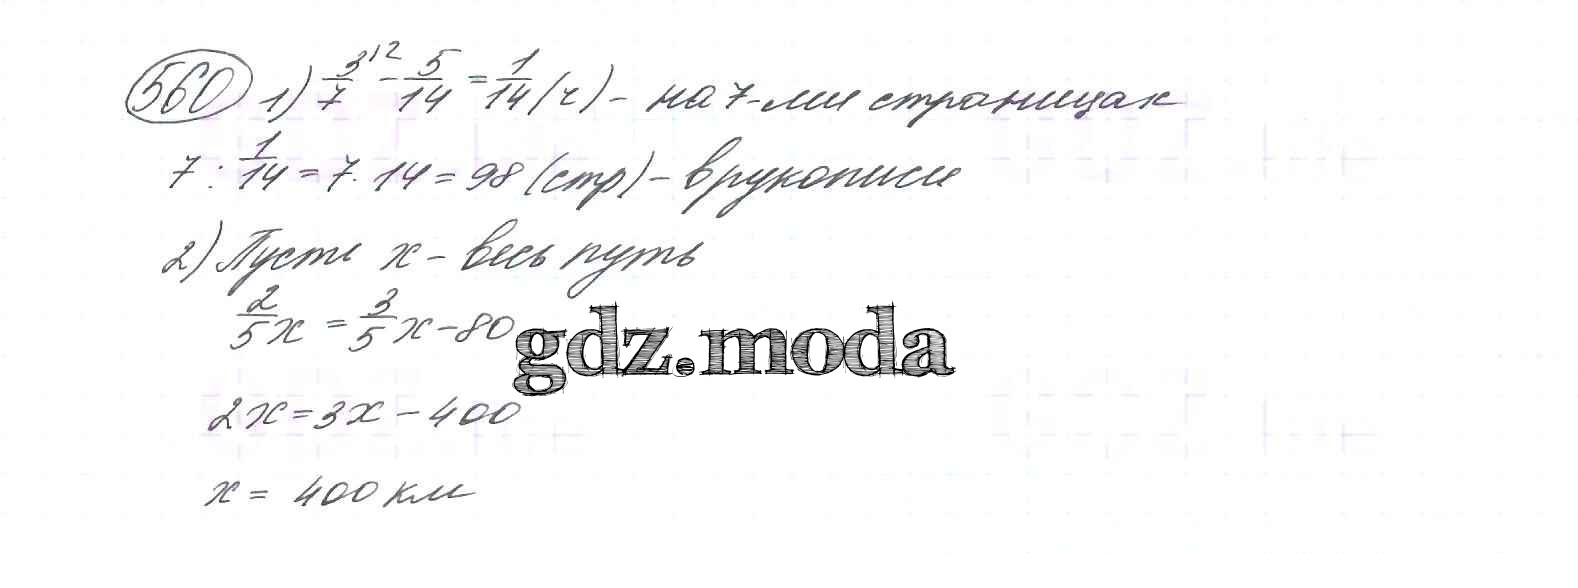 560 1) 3/7^{12} - 5/14 = 1/14 (ч) - на 7-ми страницах
7 : 1/14 = 7 · 14 = 98 (стр) - в рукописи
2) Пусть x - весь путь
2/5 x = 3/5 x - 80
gdz.moda
2x = 3x - 400
x = 400 км